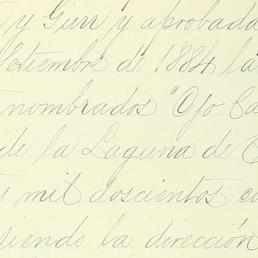 y Gurr y aprobada
Setiembre de 1884 la
nombrados "Ojo Ca
de la Laguna de C
mil doscientos co
siendo la dirección